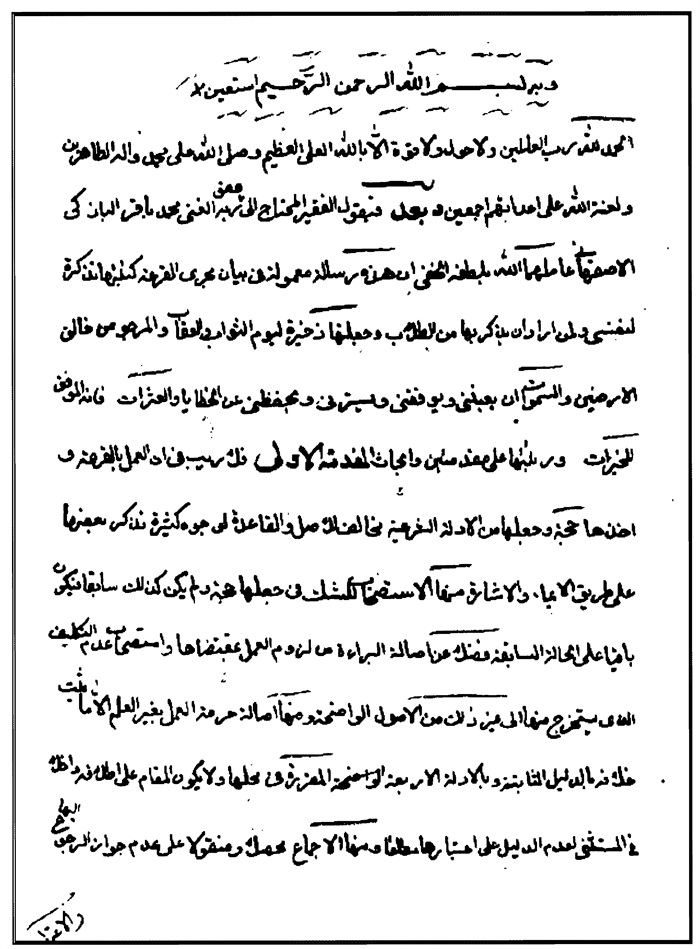 وبه بسم الله الرحمن الرحيم استعين
الحمد لله رب العالمين ولا حول ولا قوة الا بالله العلي العظيم وصلى الله على محمد واله الطاهرين
ولعنة الله على اعدائهم اجمعين وبعد فيقول الفقير المحتاج الى عفو ربه الغني محمد باقر
الاصفهاني عاملهما الله بلطفه الخفي ان هذه رسالة معمولة في بيان مجرى القرعة كتبتها تذكرة
لنفسي ولمن اراد ان يذكر بها من الطلاب وجعلتها ذخيرة ليوم الثواب والعقاب والمرجو من خالق
الارضين والسموات ان يعينني ويوفقني ويسترني ويحفظني عن الخطايا والعثرات فانه الموفق
للخيرات ورتبتها على مقدمتين وابحاث المقدمة الاولى لا ريب في ان العمل بالقرعة و
اخذها حجة وجعلها من الادلة الشرعية مخالف للاصل والقاعدة لوجوه كثيرة نذكر بعضها
على طريق الايماء والاشارة منها الاستصحاب للشك في جعلها حجة ولم يكن كذلك سابقا فيكون
باقيا على الحالة السابقة فضلا عن اصالة البراءة من لزوم العمل بمقتضاها واستصحاب عدم التكليف
الذي يستخرج منها الى غير ذلك من الاصول الواضحة ومنها اصالة حرمة العمل بغير العلم الا ما ثبت
خلافه بالدليل الثابتة وبالادلة الاربعة الواضحة المقررة في محلها ولا يكون المقام على اطلاقه داخلا
في المستثنى لعدم الدليل على اعتبارها مطلقا ومنها الاجماع محصلا ومنقولا على عدم جواز الرجوع اليها